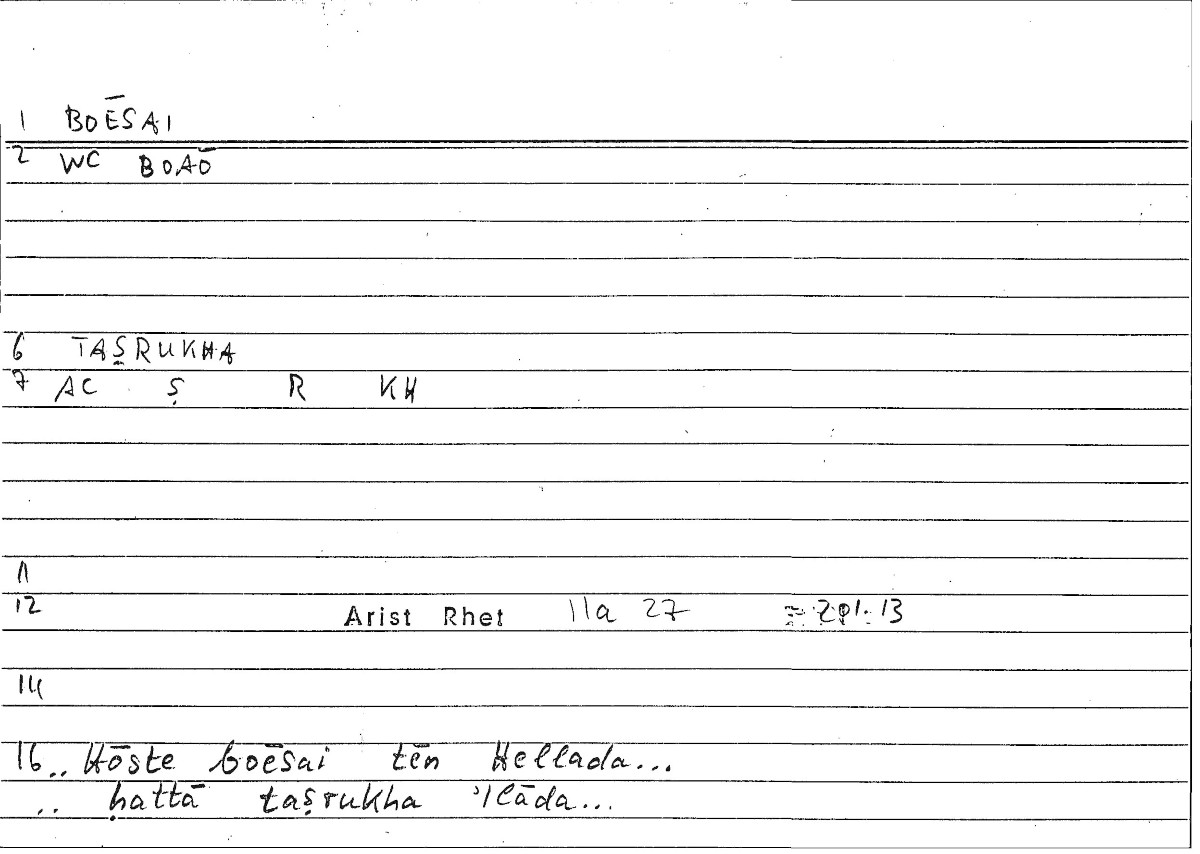 1 BOĒSAI
2 WC BOAŌ
6 TAṢRUKHA
7 AC Ṣ R KH
11
12 Arist Rhet 11a 27 = 201.13
14
16.. Hōste boēsai tēn Hellada...
.. ḥattā taṣrukha 'lāda...